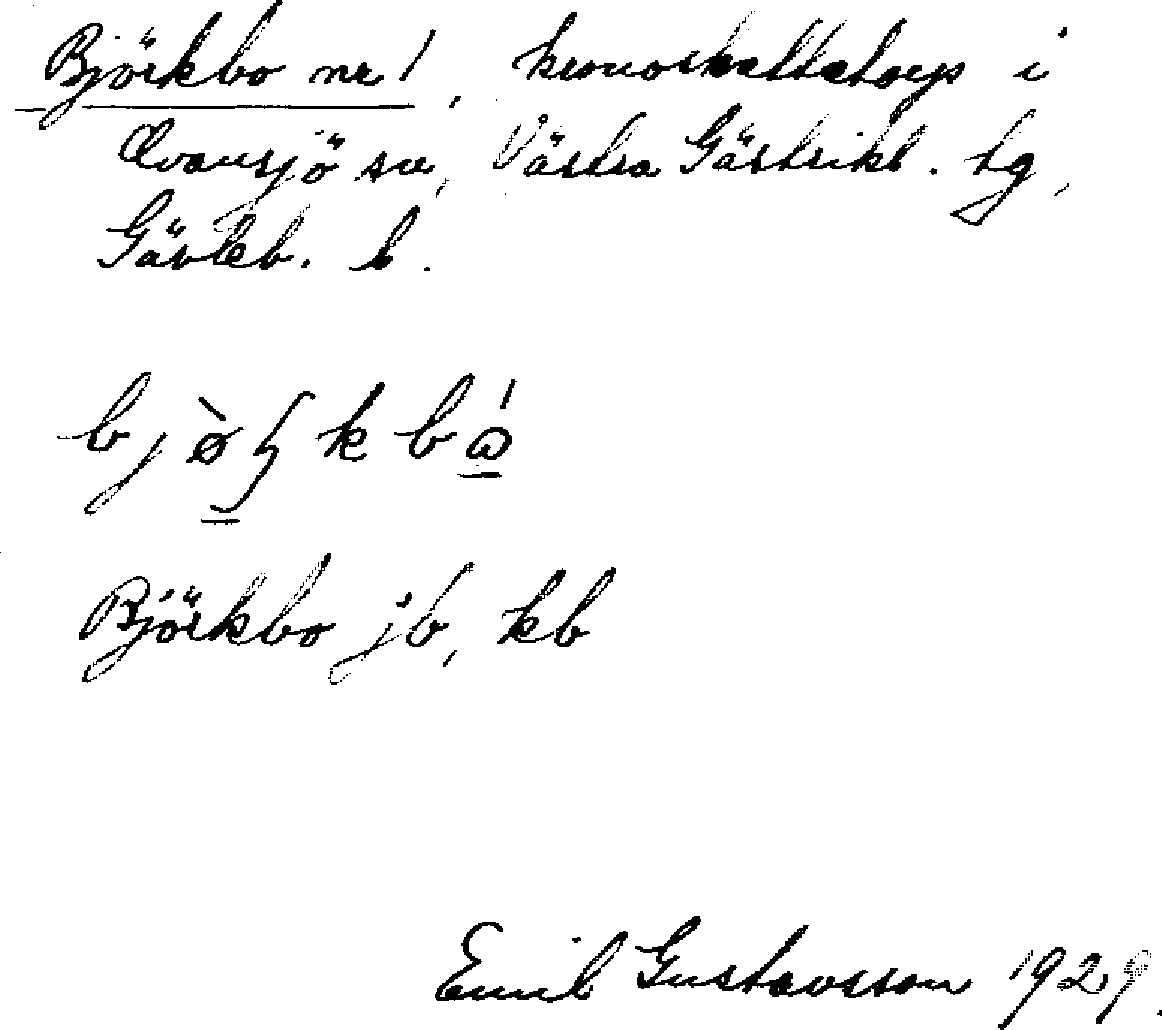 Björkbo nr 1, kronoskattetorp i
Ovansjö sn, Västra Gästrikl. tg,
Gävleb. l.
Björkbo jb, kb
Emil Gustavsson 1929.